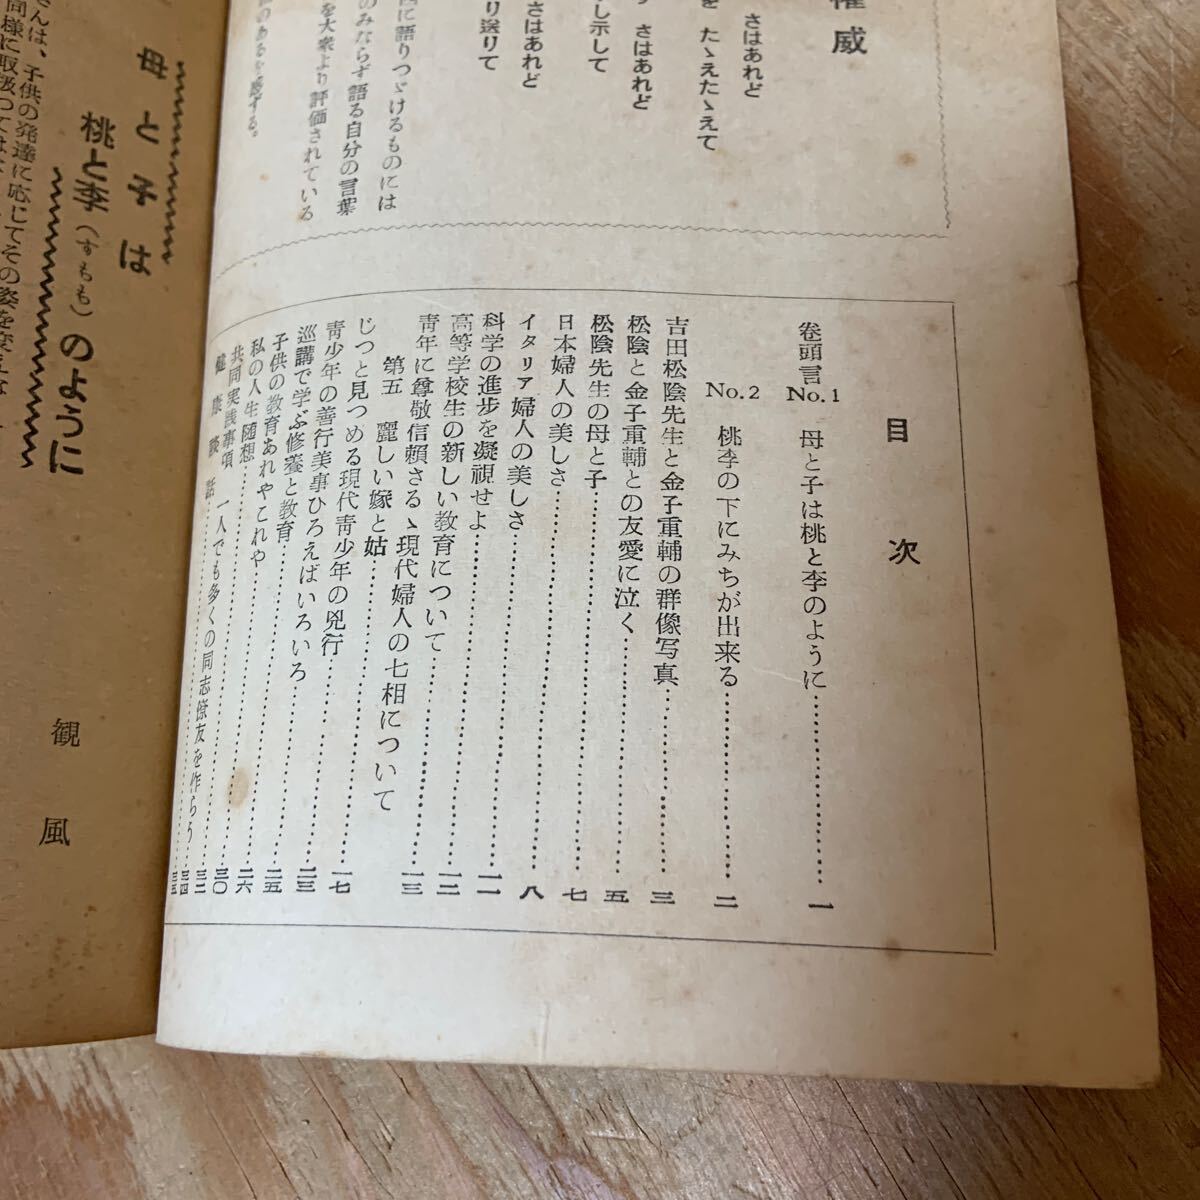 権威
さはあれど
を たゝえたゝえて
さはあれど
し示して
さはあれど
り送りて
に語りつゞけるものには
のみならず語る自分の言葉
を大衆より評価されている
のあるを感する。
目次
巻頭言
No.1 母と子は桃と李のように…………一
No.2 桃李の下にみちが出来る…………二
吉田松陰先生と金子重輔の群像写真…………三
松陰と金子重輔との友愛に泣く…………五
松陰先生の母と子…………七
日本婦人の美しさ…………八
イタリア婦人の美しさ…………一一
科学の進歩を凝視せよ…………一二
高等学校生の新しい教育について…………一三
青年に尊敬信頼さるゝ現代婦人の七相について
第五 麗しい嫁と姑…………一七
じっと見つめる現代青少年の兇行…………二三
青少年の善行美事ひろえばいろいろ…………二五
巡講で学ぶ修養と教育…………二六
子供の教育あれやこれや…………三〇
私の人生随想…………三二
共同実践事項 一人でも多くの同志僚友を作らう…………三四
健康談話…………三五
母と子は
桃と李(すもも)のように
観風
さんは、子供の発達に応じてその姿を変え
同様に取扱つては